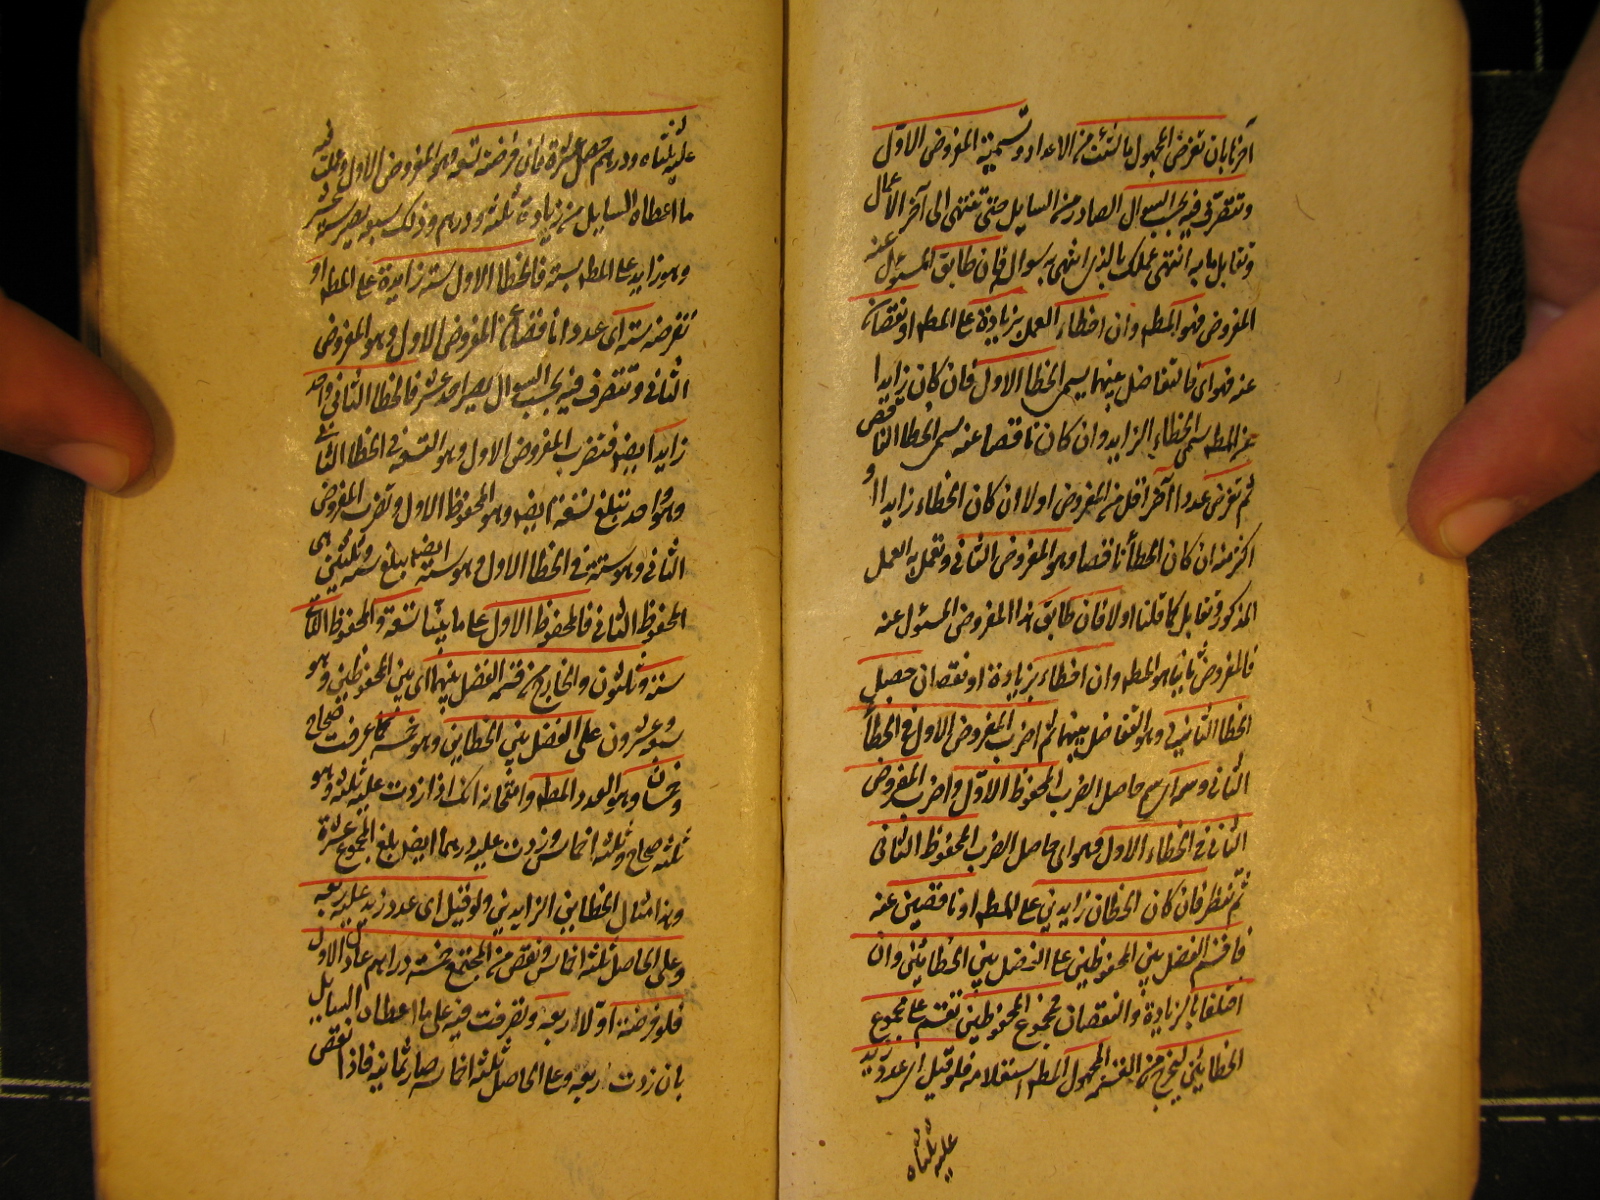 آخر بان تفرض المجهول ما شئت من الاعداد وتسمیة المفروض الاول
وتتصرف فیه بحسب السوال الصادر من السایل حتی تنتهی الی آخر الاعمال
وتقابل ما به انتهی عملک بالذی انتهی به سواله فان طابق المسؤل عنه
المفروض فهو المطه وان اخطاء العمل بزیادة علی المطه او نقصان
عنه فهو ای ما لتفاضل بینهما یسمی الخطا الاول فان کان زایدا
عن المطه سمی الخطاء الزاید وان کان ناقصا عنه سمی الخطا الناقص
ثم تفرض عددا آخر اقل من المفروض اولا ان کان الخطاء زایدا او
اکثر منه ان کان الخطأ ناقصا وهو المفروض الثانی وتعمل به العمل
المذکور وتقابل کما قلنا اولا فان طابق هذا المفروض المسئول عنه
فالمفروض ثانیا هو المطه وان اخطاء بزیادة او نقصان حصل
الخطا الثانی وهو التفاضل بینهما ثم اضرب المفروض الاول فی الخطأ
الثانی وسمه ای سم حاصل الضرب المحفوظ الاول واضرب المفروض
الثانی فی الخطاء الاول فهو ای حاصل الضرب المحفوظ الثانی
ثم تنظر فان کان الخطان زایدین علی المطه او ناقصین عنه
فاقسم الفضل بین المحفوظین علی الفضل بین الخطائین وان
اختلفا بالزیادة والنقصان فمجموع المحفوظین تقسم علی مجموع
الخطائین لیخرج من القسمه المجهول المطه استعلامه فلو قیل ای عدد زید
علیه ثلثاه
علیه ثلثاه ودرهم حصل عشرة فان فرضته تسعه فهو المفروض الاول وعملت فیه
ما اعطاه السایل من زیادة ثلثیه ودرهم وذلک سبعه یصیر ستة عشر
وهو زاید علی المطه بستة فالخطا الاول ستة زایدة علی المطه او
تفرضه ستة ای عددا ناقصا عن المفروض الاول وهو المفروض
الثانی وتتصرف فیه بحسب السوال یصیر احد عشر فالخطا الثانی واحد
زاید ایضه فتضرب المفروض الاول وهو التسعه فی الخطا الثانی
وهو واحد تبلغ تسعة ایضه وهو المحفوظ الاول وتضرب المفروض
الثانی وهو ستة فی الخطا الاول وهو ستة ایضه یبلغ ستة وثلثین هی
المحفوظ الثانی فالمحفوظ الاول علی ما بینا تسعة والمحفوظ الثانی
ستة وثلثون والخارج من قسمة الفضل بینهما ای بین المحفوظین وهو
سبعه وعشرون علی الفضل بین الخطاین وهو خمسه کما عرفت صحاح
وخمسان وهو العدد المطه وامتحانه انک اذا زدت علیه ثلثیه وهو
ثلثه صحاح وثلثه اخماس وزدت علیه درهما ایضا بلغ المجموع عشرة
وهذا مثال الخطاین الزایدین ولو قیل ای عدد زید علیه ربعه
وعلی الحاصل ثلثة اخماسه ونقص من المجتمع خمسة دراهم عاد الاول
فلو فرضته اولا اربعه وتصرفت فیه علی ما اعطاه السایل
بان زدت ربعه وعلی الحاصل ثلثه اخماسه صار ثمانیه فاذا نقص